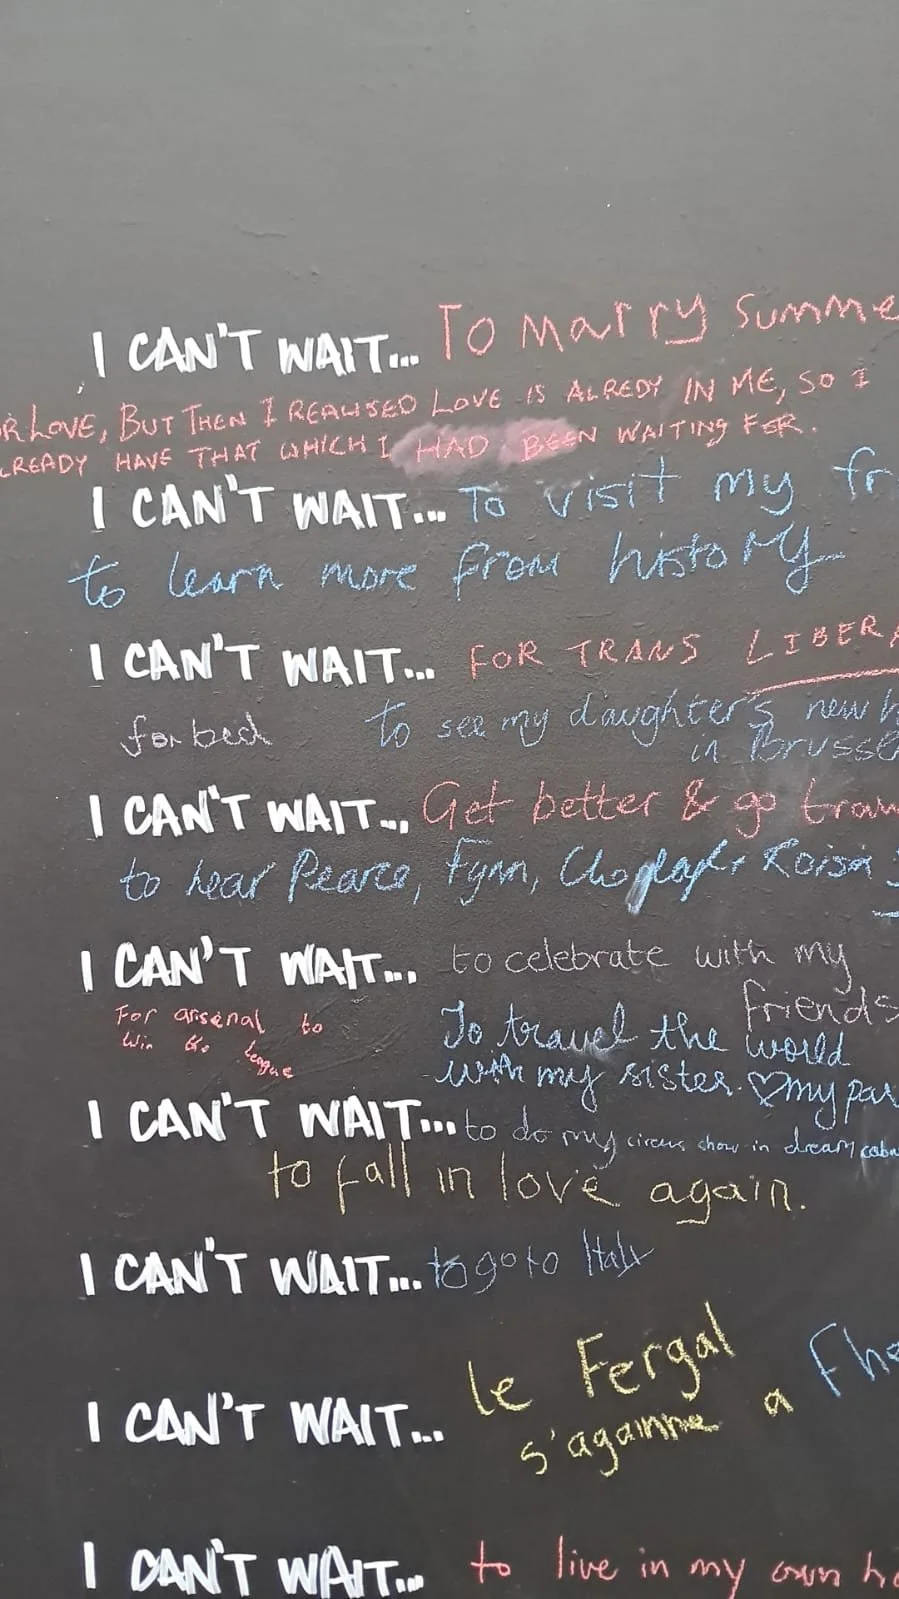 I CAN'T WAIT... To Marry Summe
OR LOVE, BUT THEN I REALISED LOVE IS ALREDY IN ME, SO I
LREADY HAVE THAT WHICH I HAD BEEN WAITING FER.
I CAN'T WAIT... To visit my fr
to learn more from history
I CAN'T WAIT... FOR TRANS LIBERA
for bed to see my daughter's new h
in Brusse
I CAN'T WAIT... Get better & go trav
to hear Pearce, Fynn, Roisin
I CAN'T WAIT... to celebrate with my
friends
For arsenal to
win the
league
To travel the world
with my sister. ♡my par
I CAN'T WAIT... to do my circus show in dream caba
to fall in love again.
I CAN'T WAIT... to go to Italy
I CAN'T WAIT... le Fergal a Fhe
s'agamne
I CAN'T WAIT... to live in my own ho